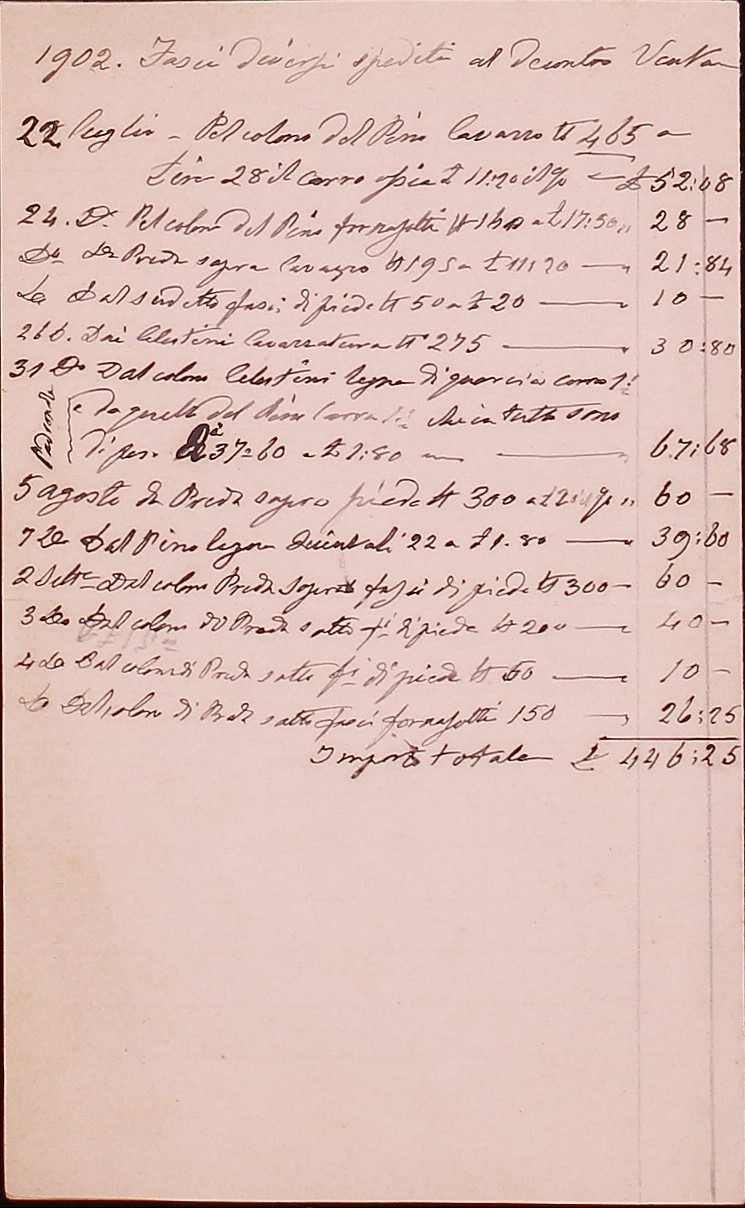 1902. Fasci diversi spediti al Scontro
22 luglio – Pel colono del Pino lavazzo N 465 a
Lire 28 il carro ossia £ 11:20 il % — £ 52:08
24. Do. Pel colono del Pino fornasotti N 160 a £ 17:50 „ 28 —
Do Da Preda sopra lavazzo N 195 a £ 11:20 — „ 21:84
Do Dal sudetto fasci di piede N 50 a £ 20 — „ 10 —
26 D. Dai Celestini lavazzatura N° 275 — „ 30:80
31 Do Dal colono Celestini legna di quercia carra 1:
Padronale
e da quello del Pino Carra 1: che in tutto sono
di peso Qi 37=60 a £ 1:80 — „ 67:68
5 agosto da Preda sopra piede N 300 a £ 20 il % „ 60 —
7 Do Dal Pino legna Quintali 22 a £ 1.80 — „ 39:60
2 Sette Dal colono Preda Sopra fasci di piede N 300 – 60 –
3 Do Dal colono di Preda sotto fi di piede N 200 — „ 40 –
4 Do Dal colono di Preda sotto fi di piede N 50 — „ 10 –
Do Dal colono di Preda sotto fasci fornasotti 150 — „ 26:25
Importo totale £ 446:25